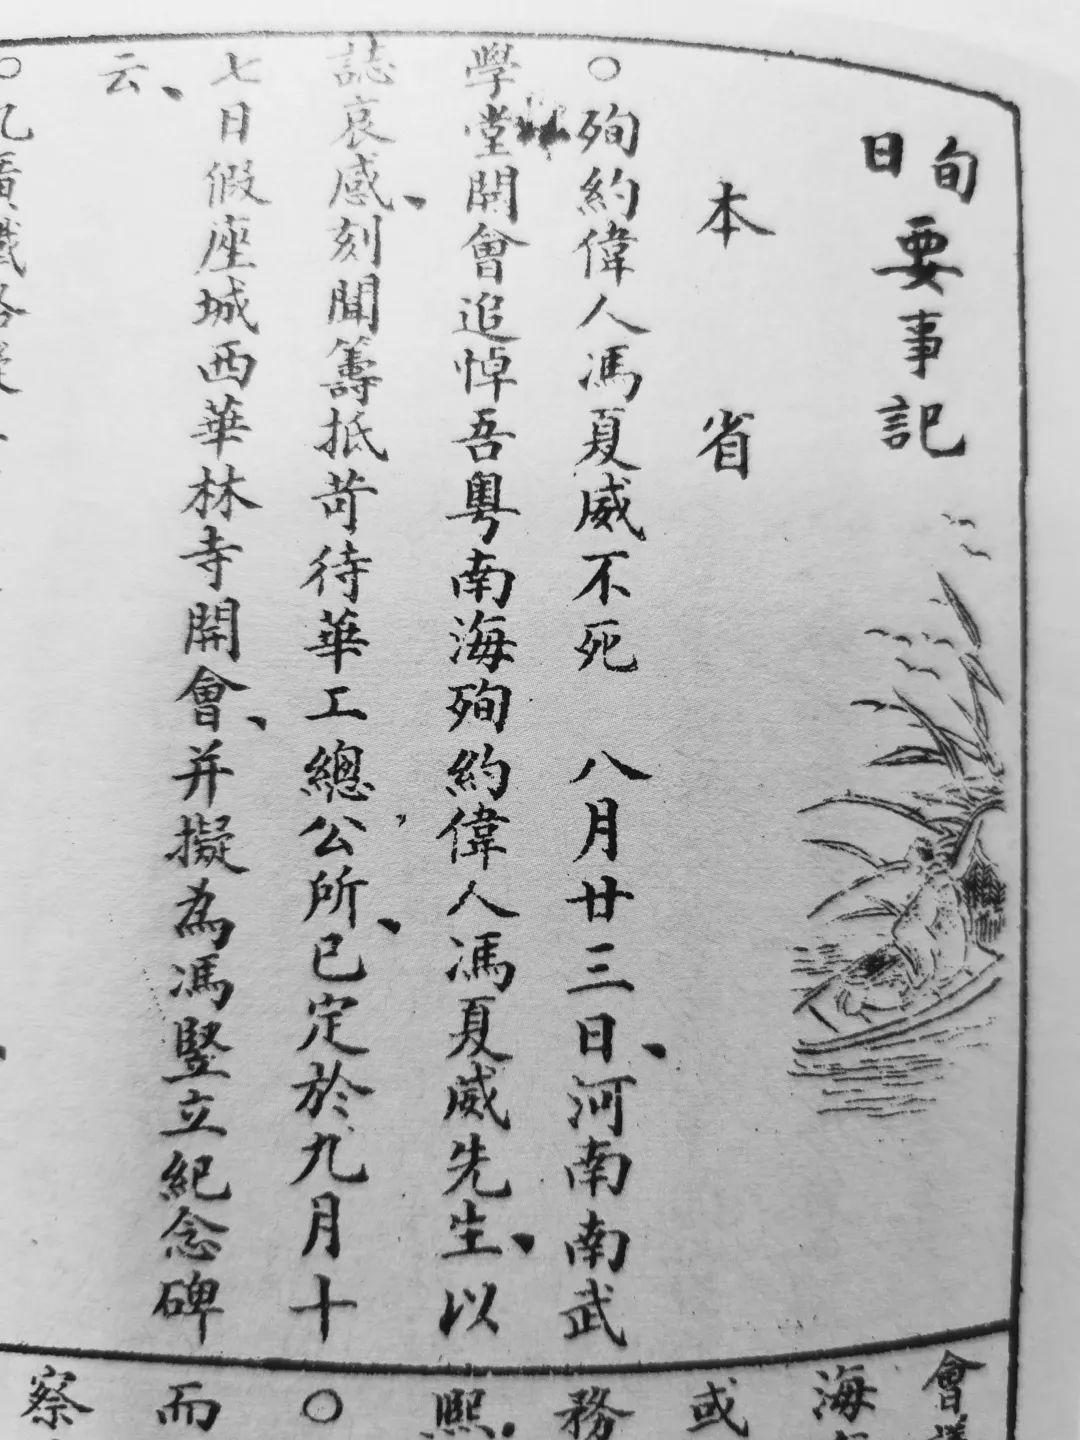 旬日要事記
本省
○殉約偉人馮夏威不死 八月廿三日、河南南武
學堂開會追悼吾粵南海殉約偉人馮夏威先生、以
誌哀感、刻聞籌抵苛待華工總公所、已定於九月十
七日假座城西華林寺開會、并擬為馮豎立紀念碑
云、
會
海
或
務
熙
○
而
察